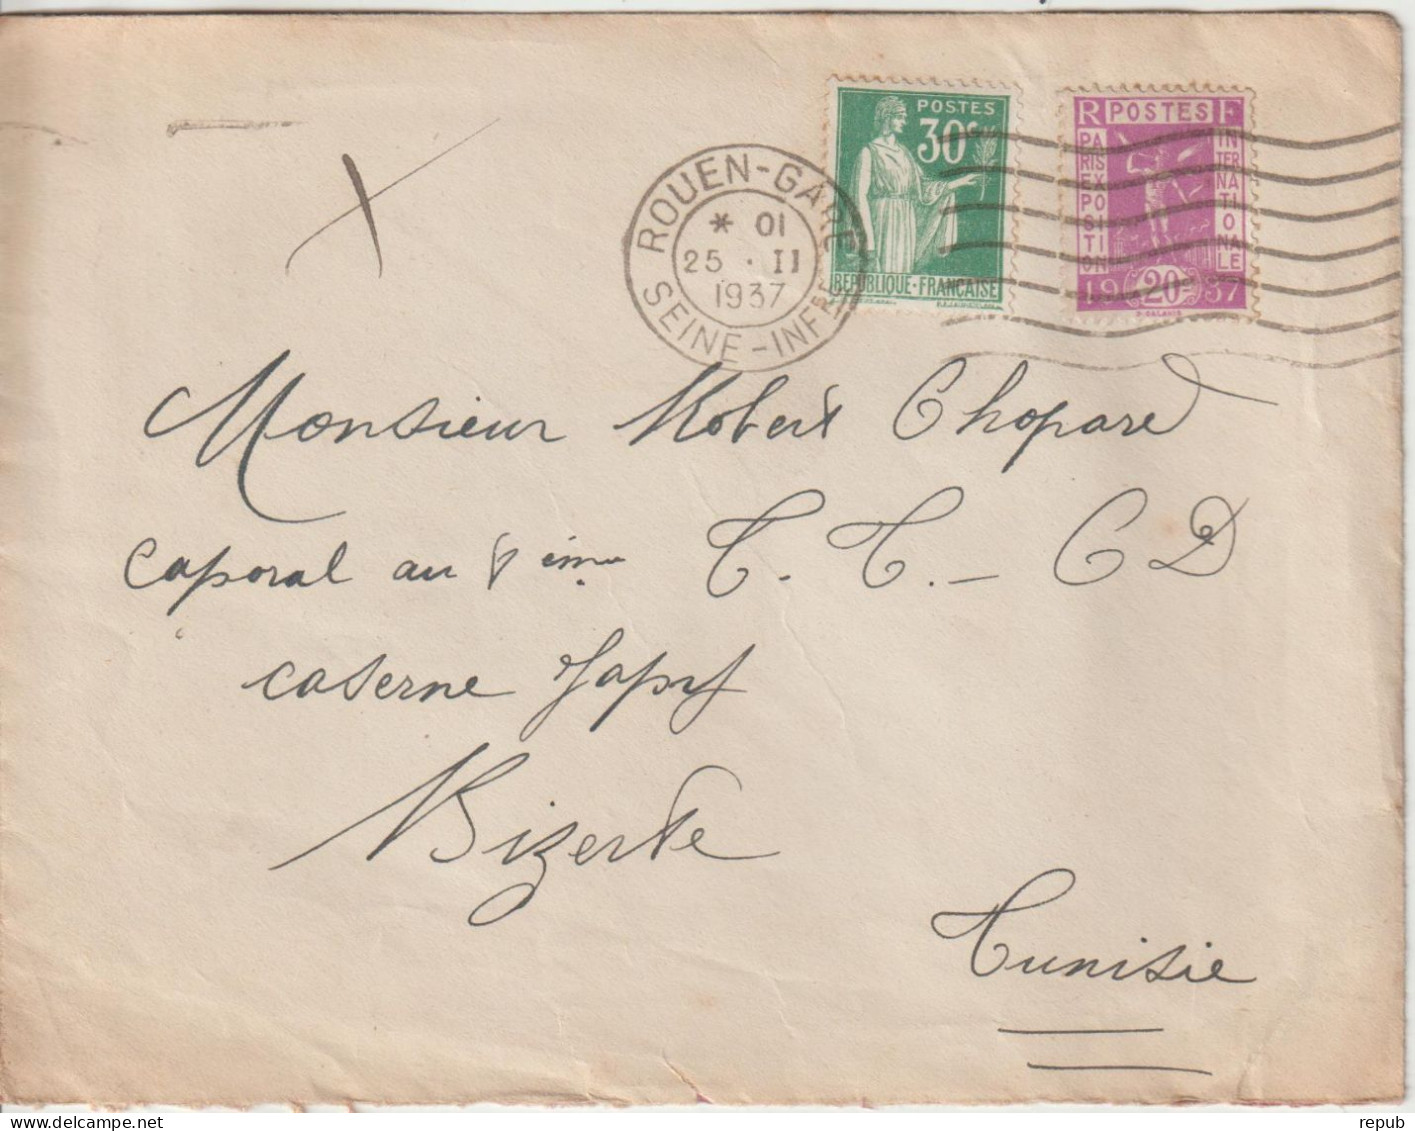 POSTES
30c
REPUBLIQUE-FRANÇAISE
R POSTES F
PARIS EXPOSITION
INTERNATIONALE
1937
20c
ROUEN-GARE
* 01
25 · II
1937
SEINE-INFRE
Monsieur Robert Chopard
caporal au 8 ème T. T. - C D
caserne Japy
Bizerte
Tunisie
repub